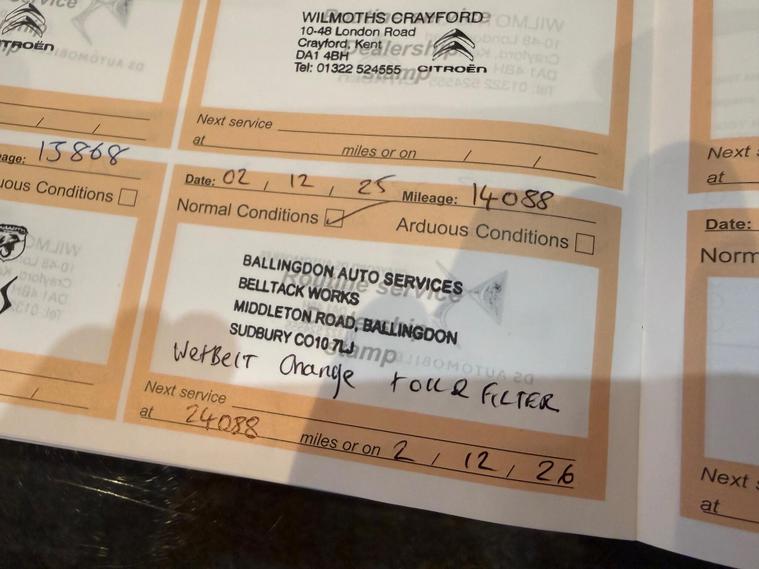 WILMOTHS CRAYFORD
10-48 London Road
Crayford, Kent
DA1 4BH
Tel: 01322 524555
CITROËN
Dealership
stamp
CITROËN
Next service
at miles or on / /
13868
Conditions
Date: 02, 12, 25 Mileage: 14088
Normal Conditions Arduous Conditions
BALLINGDON AUTO SERVICES
BELLTACK WORKS
MIDDLETON ROAD, BALLINGDON
SUDBURY CO10 7LJ
Routine service
stamp
WetBelt Change + OIL & FILTER
Next service
at 24088 miles or on 2, 12, 26
Next
at
Date:
Next
at